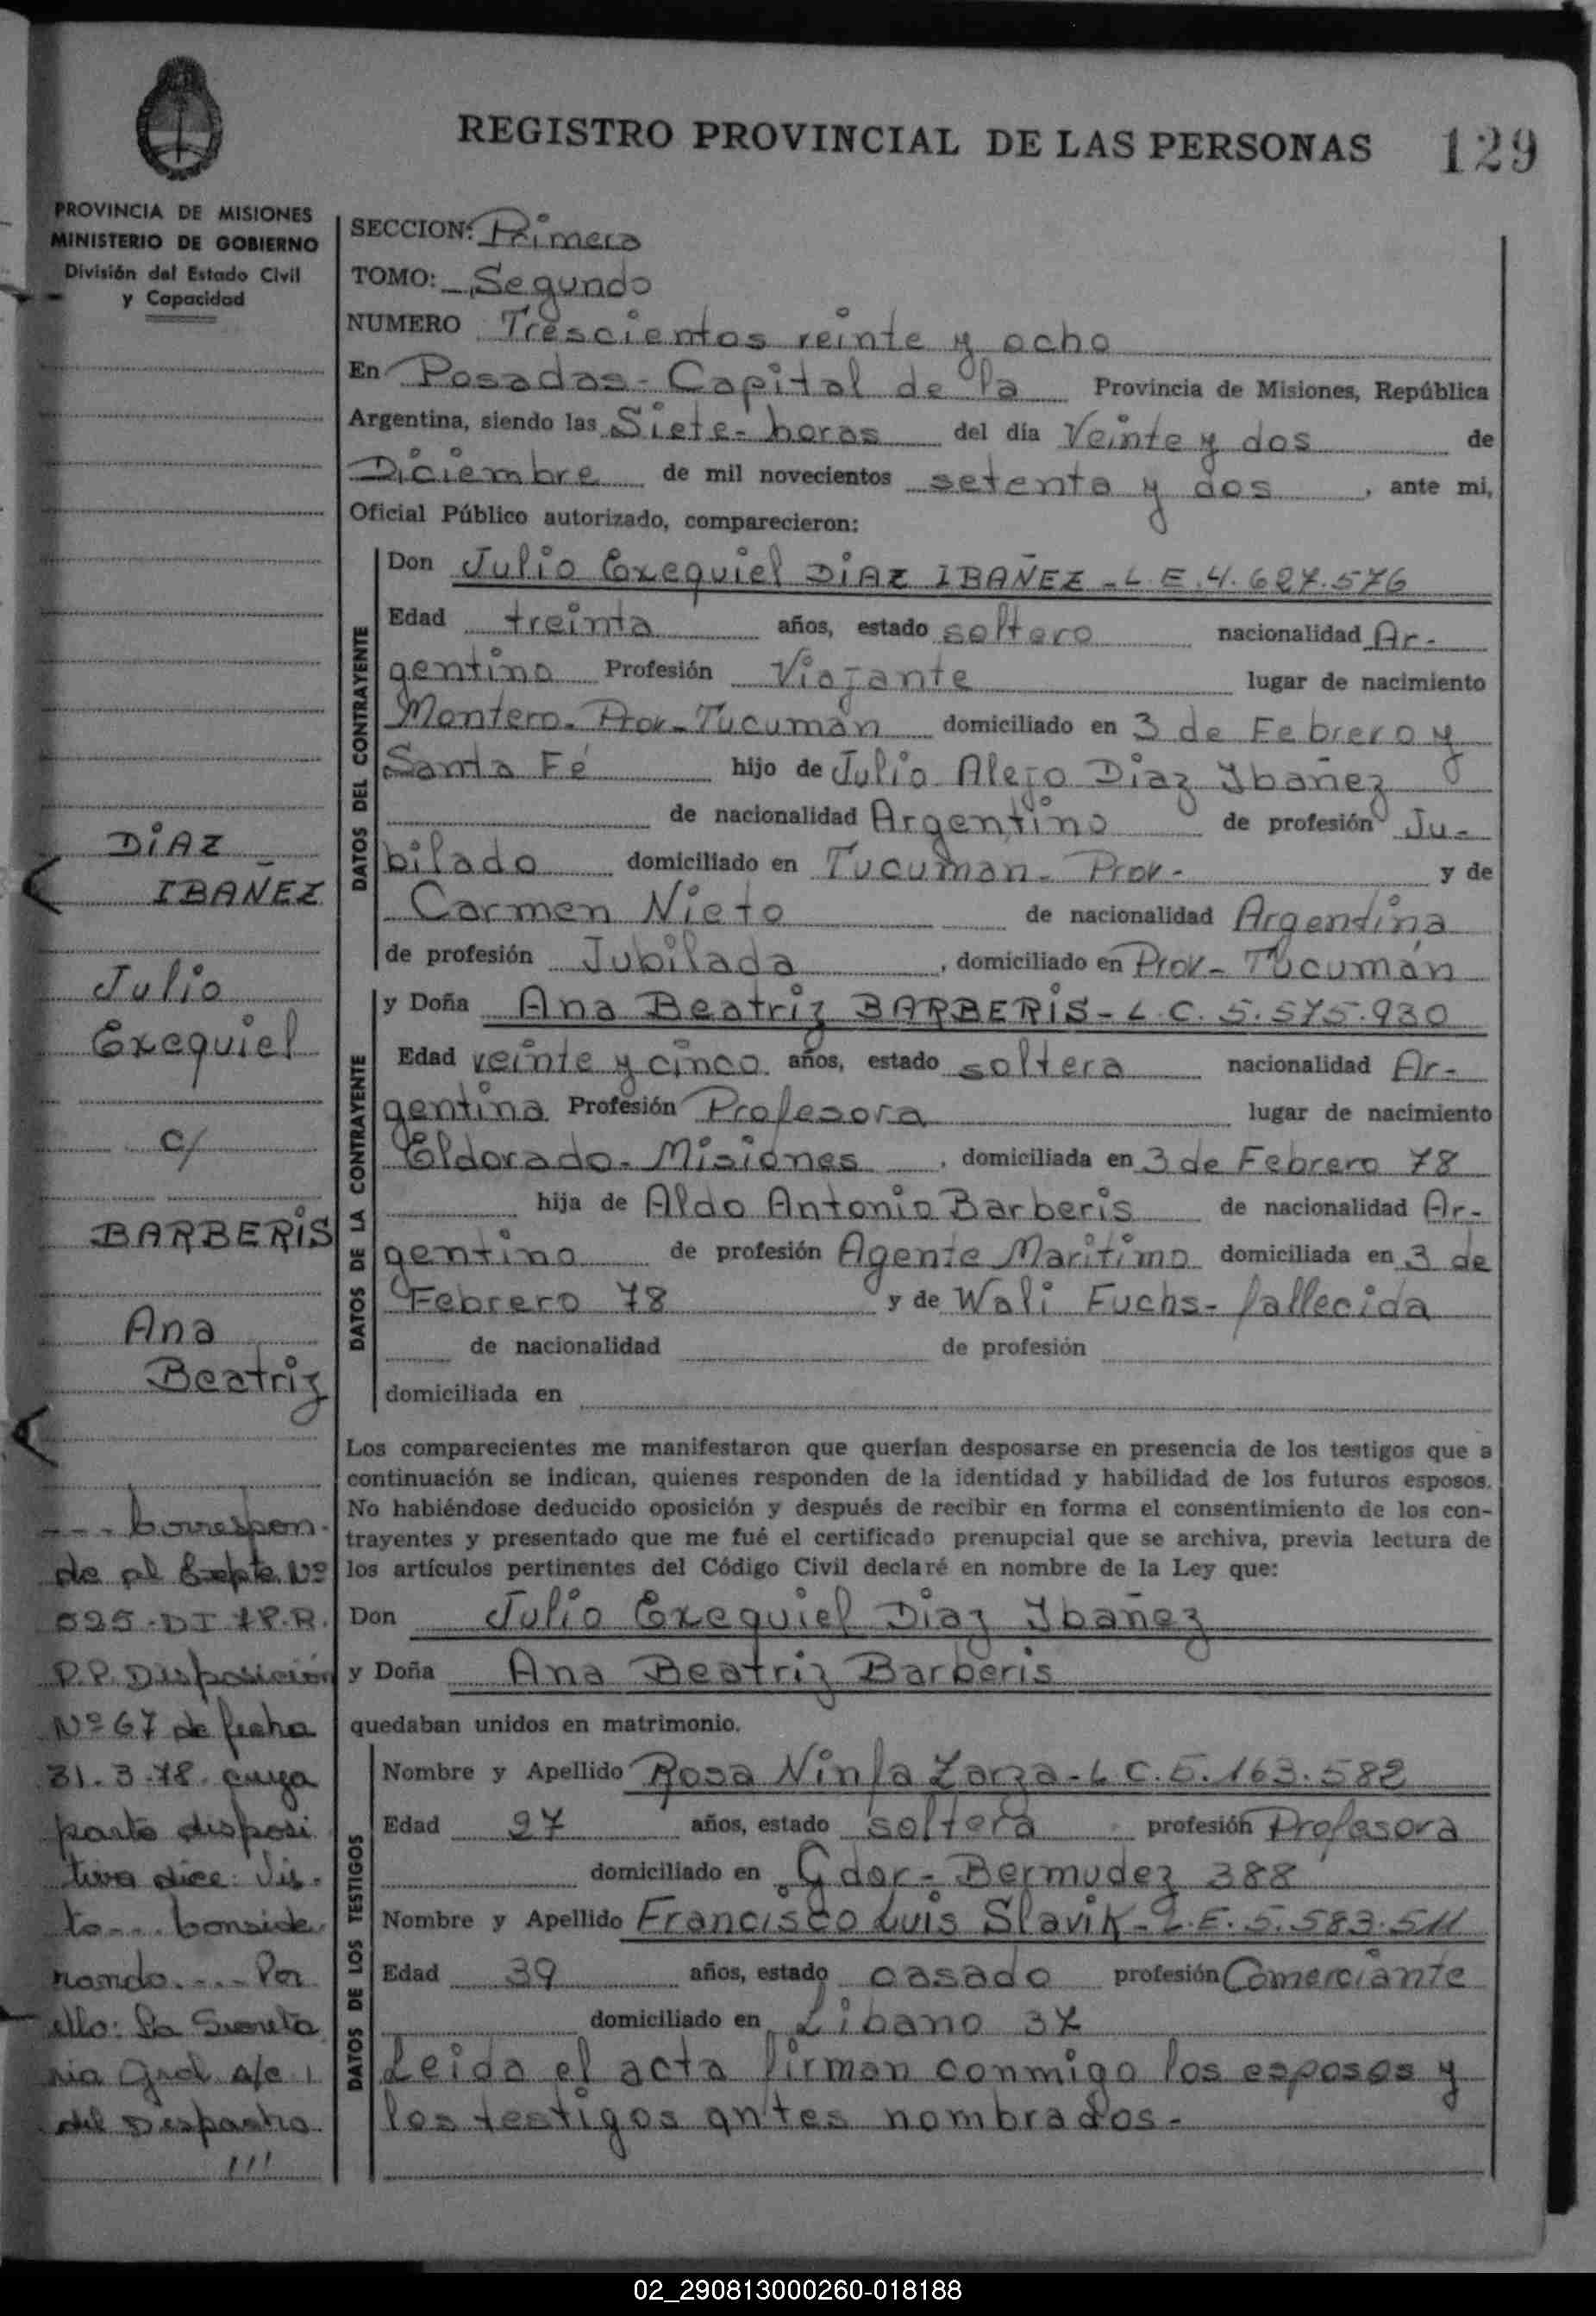 REGISTRO PROVINCIAL DE LAS PERSONAS 129
PROVINCIA DE MISIONES
MINISTERIO DE GOBIERNO
División del Estado Civil
y Capacidad
SECCION: Primera
TOMO: Segundo
NUMERO Trescientos veinte y ocho
En Posadas - Capital de la Provincia de Misiones, República
Argentina, siendo las Siete - horas del día Veinte y dos de
Diciembre de mil novecientos setenta y dos, ante mi,
Oficial Público autorizado, comparecieron:
DATOS DEL CONTRAYENTE
Don Julio Exequiel DiAZ IBAÑEZ - L.E. 4.627.576
Edad treinta años, estado soltero nacionalidad Ar-
gentino Profesión Viajante lugar de nacimiento
Montero - Prov - Tucumán domiciliado en 3 de Febrero y
Santa Fé hijo de Julio Alejo Diaz Ybañez
de nacionalidad Argentino de profesión Ju-
bilado domiciliado en Tucuman - Prov - y de
Carmen Nieto de nacionalidad Argentina
de profesión Jubilada, domiciliado en Prov - Tucumán
DATOS DE LA CONTRAYENTE
y Doña Ana Beatriz BARBERiS - L.C. 5.575.930
Edad veinte y cinco años, estado soltera nacionalidad Ar-
gentina Profesión Profesora lugar de nacimiento
Eldorado - Misiones, domiciliada en 3 de Febrero 78
hija de Aldo Antonio Barberis de nacionalidad Ar-
gentino de profesión Agente Marítimo domiciliada en 3 de
Febrero 78 y de Wali Fuchs - fallecida
de nacionalidad de profesión
domiciliada en
Los comparecientes me manifestaron que querían desposarse en presencia de los testigos que a
continuación se indican, quienes responden de la identidad y habilidad de los futuros esposos.
No habiéndose deducido oposición y después de recibir en forma el consentimiento de los con-
trayentes y presentado que me fué el certificado prenupcial que se archiva, previa lectura de
los artículos pertinentes del Código Civil declaré en nombre de la Ley que:
Don Julio Exequiel Diaz Ybañez
y Doña Ana Beatriz Barberis
quedaban unidos en matrimonio.
DATOS DE LOS TESTIGOS
Nombre y Apellido Rosa Ninfa Zarza - L.C. 5.163.582
Edad 27 años, estado soltera profesión Profesora
domiciliado en Gdor - Bermudez 388
Nombre y Apellido Francisco Luis Slavik - L.E. 5.583.511
Edad 39 años, estado casado profesión Comerciante
domiciliado en Libano 37
Leida el acta firman conmigo los esposos y
los testigos antes nombrados -
DiAZ
IBAÑEZ
Julio
Exequiel
c/
BARBERiS
Ana
Beatriz
--- Correspon-
de al Expte. Nº
525 - DI 78. R.
P.P. Disposición
Nº 67 de fecha
31.3.78. cuya
parte disposi
tiva dice: Vis-
to... Conside
rando.... Por
ello: La Secreta
ria Gral a/c
del Despacho
///
02_290813000260-018188